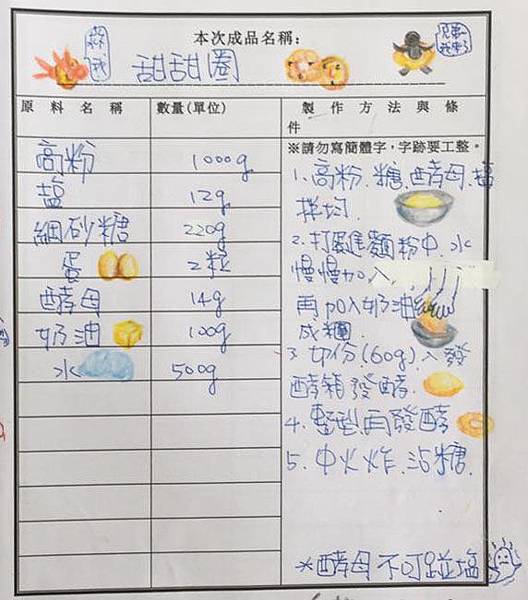 本次成品名稱:
甜甜圈
原料名稱 數量(單位) 製作方法與條件
※請勿寫簡體字,字跡要工整。
高粉 1000g
盐 12g
細砂糖 220g
蛋 2粒
酵母 14g
奶油 100g
水 500g
1. 高粉、糖、酵母、盐
拌均
2. 打蛋進麵粉中、水
慢慢加入
再加入奶油
成糰
3 切份(60g)入發
酵箱發酵
4. 整型再發酵
5. 中火炸、沾糖
*酵母不可碰塩